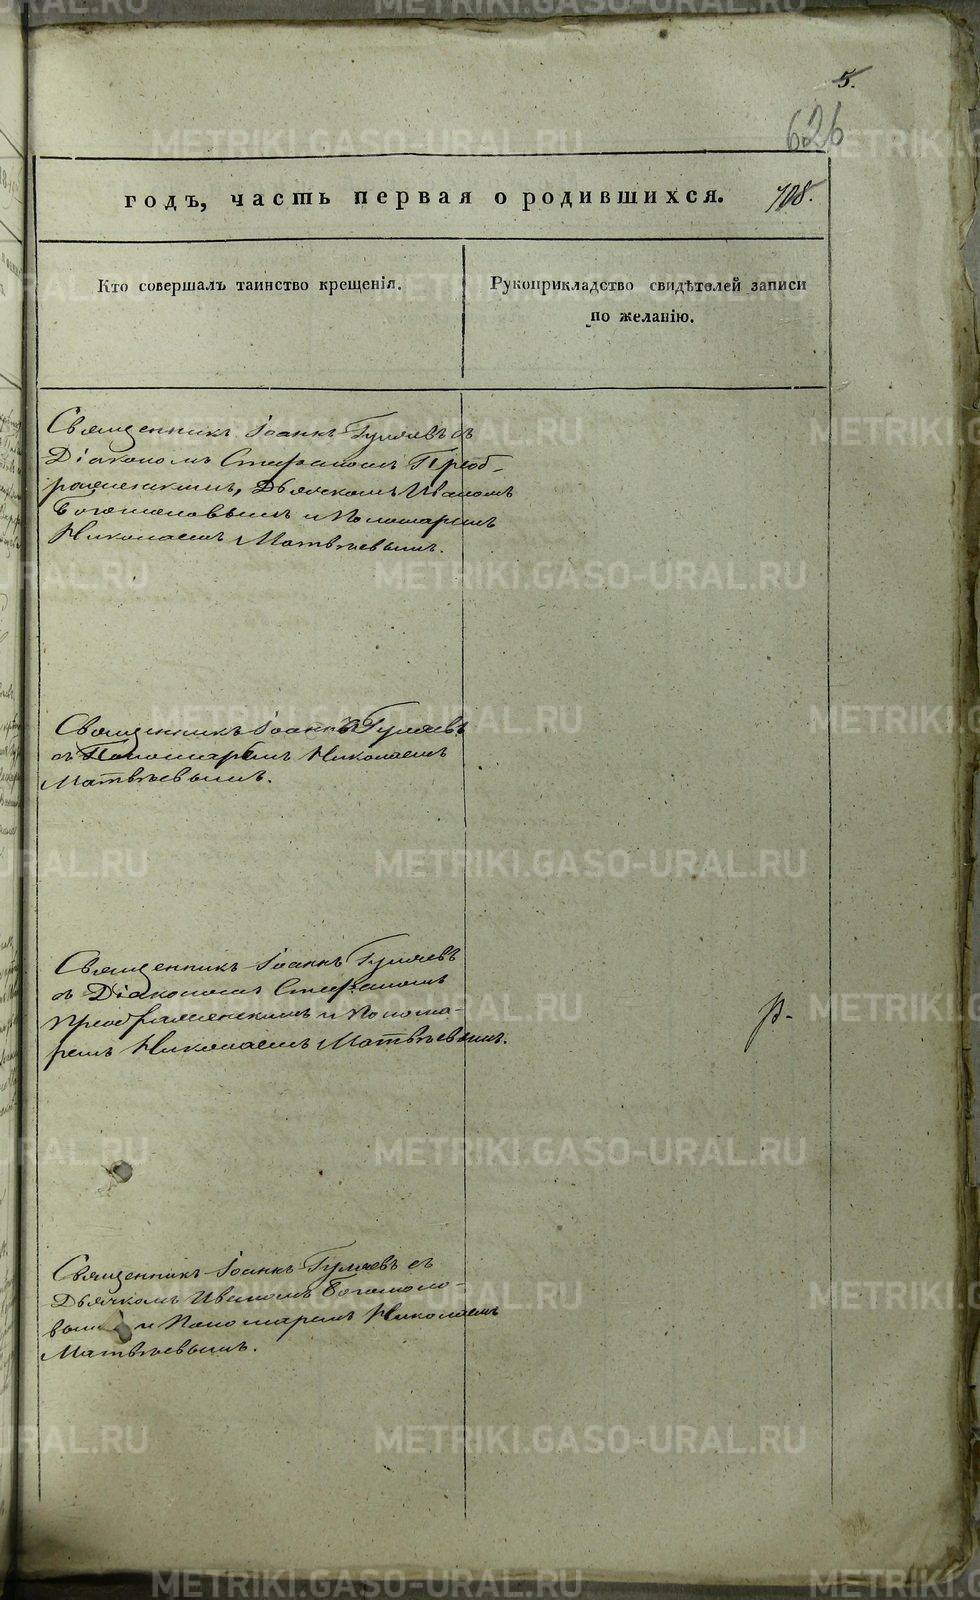 5.
626
годъ, часть первая о родившихся. 708.
Кто совершалъ таинство крещенія.
Рукоприкладство свидѣтелей записи
по желанію.
Священникъ Іоаннъ Гуляевъ съ
Діакономъ Стефаномъ Преоб-
раженскимъ, Дьячкомъ Иваномъ
Богомоловымъ и Пономаремъ
Николаемъ Матвѣевымъ.
Священникъ Іоаннъ Гуляевъ
съ Пономаремъ Николаемъ
Матвѣевымъ.
Священникъ Іоаннъ Гуляевъ
съ Діакономъ Стефаномъ
Преображенскимъ и Понома-
ремъ Николаемъ Матвѣевымъ.
р.
Священникъ Іоаннъ Гуляевъ съ
Дьячкомъ Иваномъ Богомоло-
вымъ и Пономаремъ Николаемъ
Матвѣевымъ.
METRIKI.GASO-URAL.RU